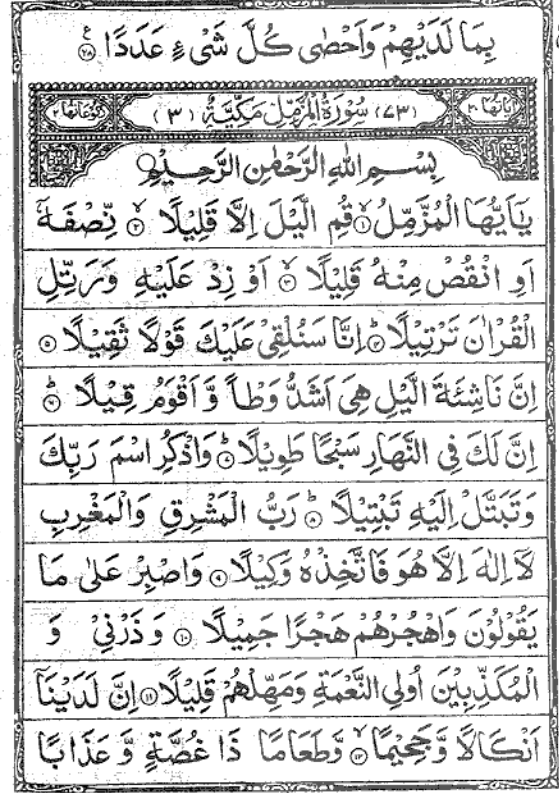 بِمَا لَدَيْهِمْ وَاَحْصٰى كُلَّ شَیْءٍ عَدَدًا ﴿۲۸﴾ ع
اٰيَاتُهَا ٢٠ (٧٣) سُوْرَةُ الْمُزَّمِّلِ مَكِّيَّةٌ (٣) رُكُوْعَاتُهَا ٢
بِسْمِ اللهِ الرَّحْمٰنِ الرَّحِيْمِ
يٰۤاَيُّهَا الْمُزَّمِّلُ ﴿۱﴾ قُمِ الَّيْلَ اِلَّا قَلِيْلًا ﴿۲﴾ نِّصْفَهٗۤ
اَوِ انْقُصْ مِنْهُ قَلِيْلًا ﴿۳﴾ اَوْ زِدْ عَلَيْهِ وَرَتِّلِ
الْقُرْاٰنَ تَرْتِيْلًا ﴿۴﴾ اِنَّا سَنُلْقِیْ عَلَيْكَ قَوْلًا ثَقِيْلًا ﴿۵﴾
اِنَّ نَاشِئَةَ الَّيْلِ هِیَ اَشَدُّ وَطْاً وَّاَقْوَمُ قِيْلًا ﴿۶﴾
اِنَّ لَكَ فِی النَّهَارِ سَبْحًا طَوِيْلًا ﴿۷﴾ وَاذْكُرِ اسْمَ رَبِّكَ
وَتَبَتَّلْ اِلَيْهِ تَبْتِيْلًا ﴿۸﴾ رَبُّ الْمَشْرِقِ وَالْمَغْرِبِ
لَاۤ اِلٰهَ اِلَّا هُوَ فَاتَّخِذْهُ وَكِيْلًا ﴿۹﴾ وَاصْبِرْ عَلٰى مَا
يَقُوْلُوْنَ وَاهْجُرْهُمْ هَجْرًا جَمِيْلًا ﴿۱۰﴾ وَذَرْنِیْ وَ
الْمُكَذِّبِيْنَ اُولِی النَّعْمَةِ وَمَهِّلْهُمْ قَلِيْلًا ﴿۱۱﴾ اِنَّ لَدَيْنَاۤ
اَنْكَالًا وَّجَحِيْمًا ﴿۱۲﴾ وَّطَعَامًا ذَا غُصَّةٍ وَّعَذَابًا